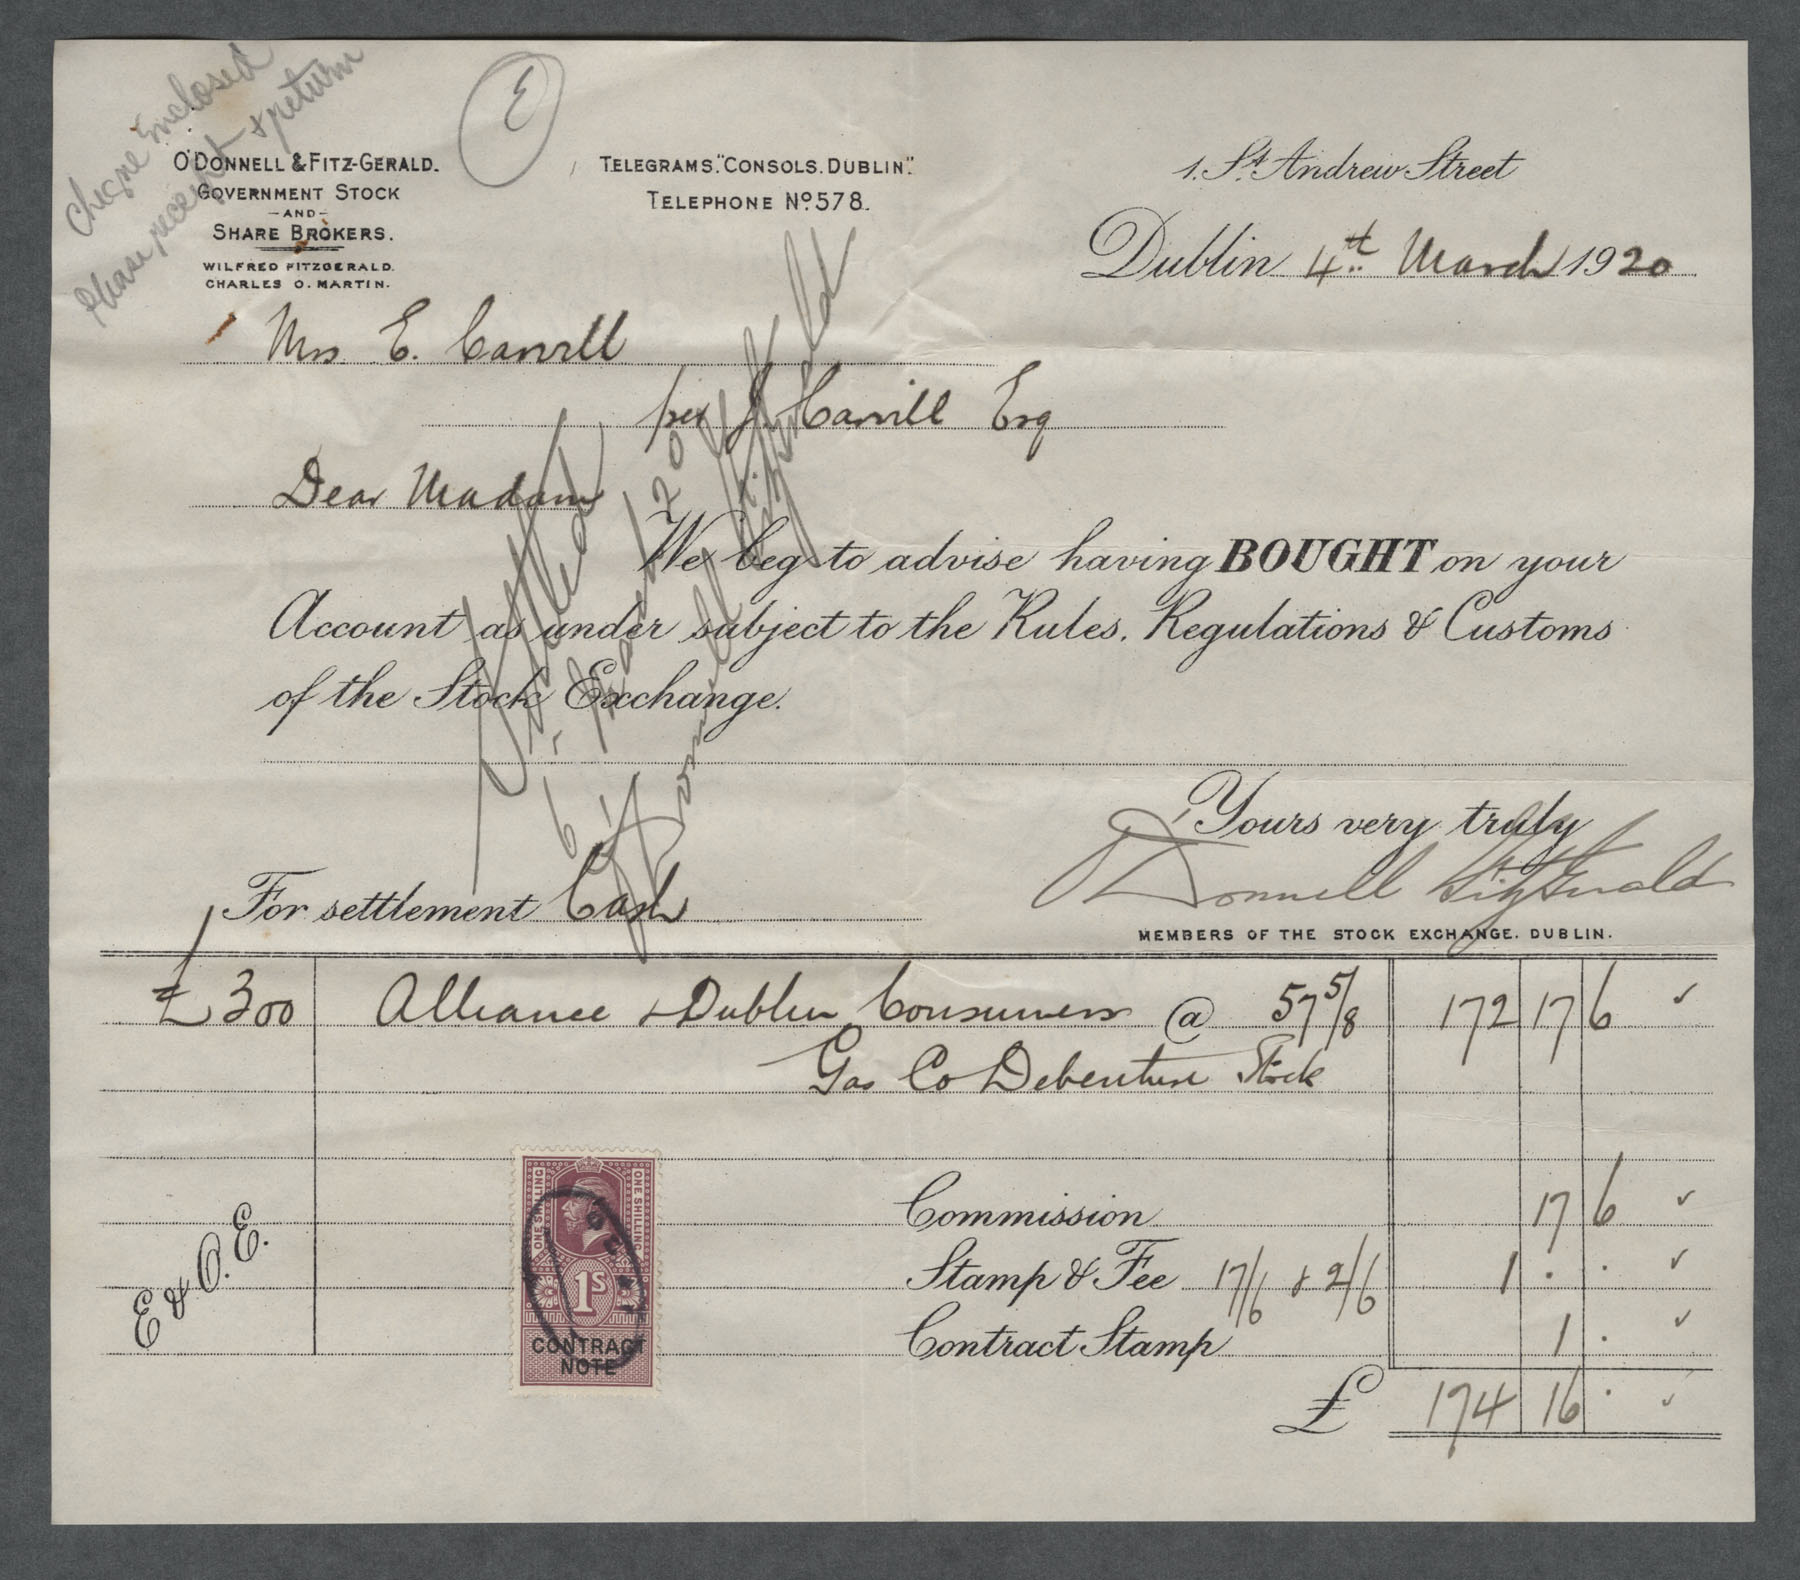 Cheque Enclosed
Please receipt & return
E
O'DONNELL & FITZ-GERALD.
GOVERNMENT STOCK
-AND-
SHARE BROKERS.
WILFRED FITZGERALD.
CHARLES O. MARTIN.
TELEGRAMS. "CONSOLS. DUBLIN".
TELEPHONE No. 578.
1. St. Andrew Street
Dublin 4th March 1920
Mrs E. Carvill
per J. Carvill Esq
Dear Madam
We beg to advise having BOUGHT on your
Account as under subject to the Rules, Regulations & Customs
of the Stock Exchange.
Settled
6 March/20
O'Donnell FitzGerald
Yours very truly
O'Donnell FitzGerald
MEMBERS OF THE STOCK EXCHANGE. DUBLIN.
For settlement Cash
£300 Alliance & Dublin Consumers @ 57 5/8 172 17 6
Gas Co Debenture Stock
ONE SHILLING
ONE SHILLING
1S
CONTRACT
NOTE
Commission 17 6
Stamp & Fee 17/6 & 2/6 1 . .
Contract Stamp 1 .
E & O.E.
£ 174 16 .